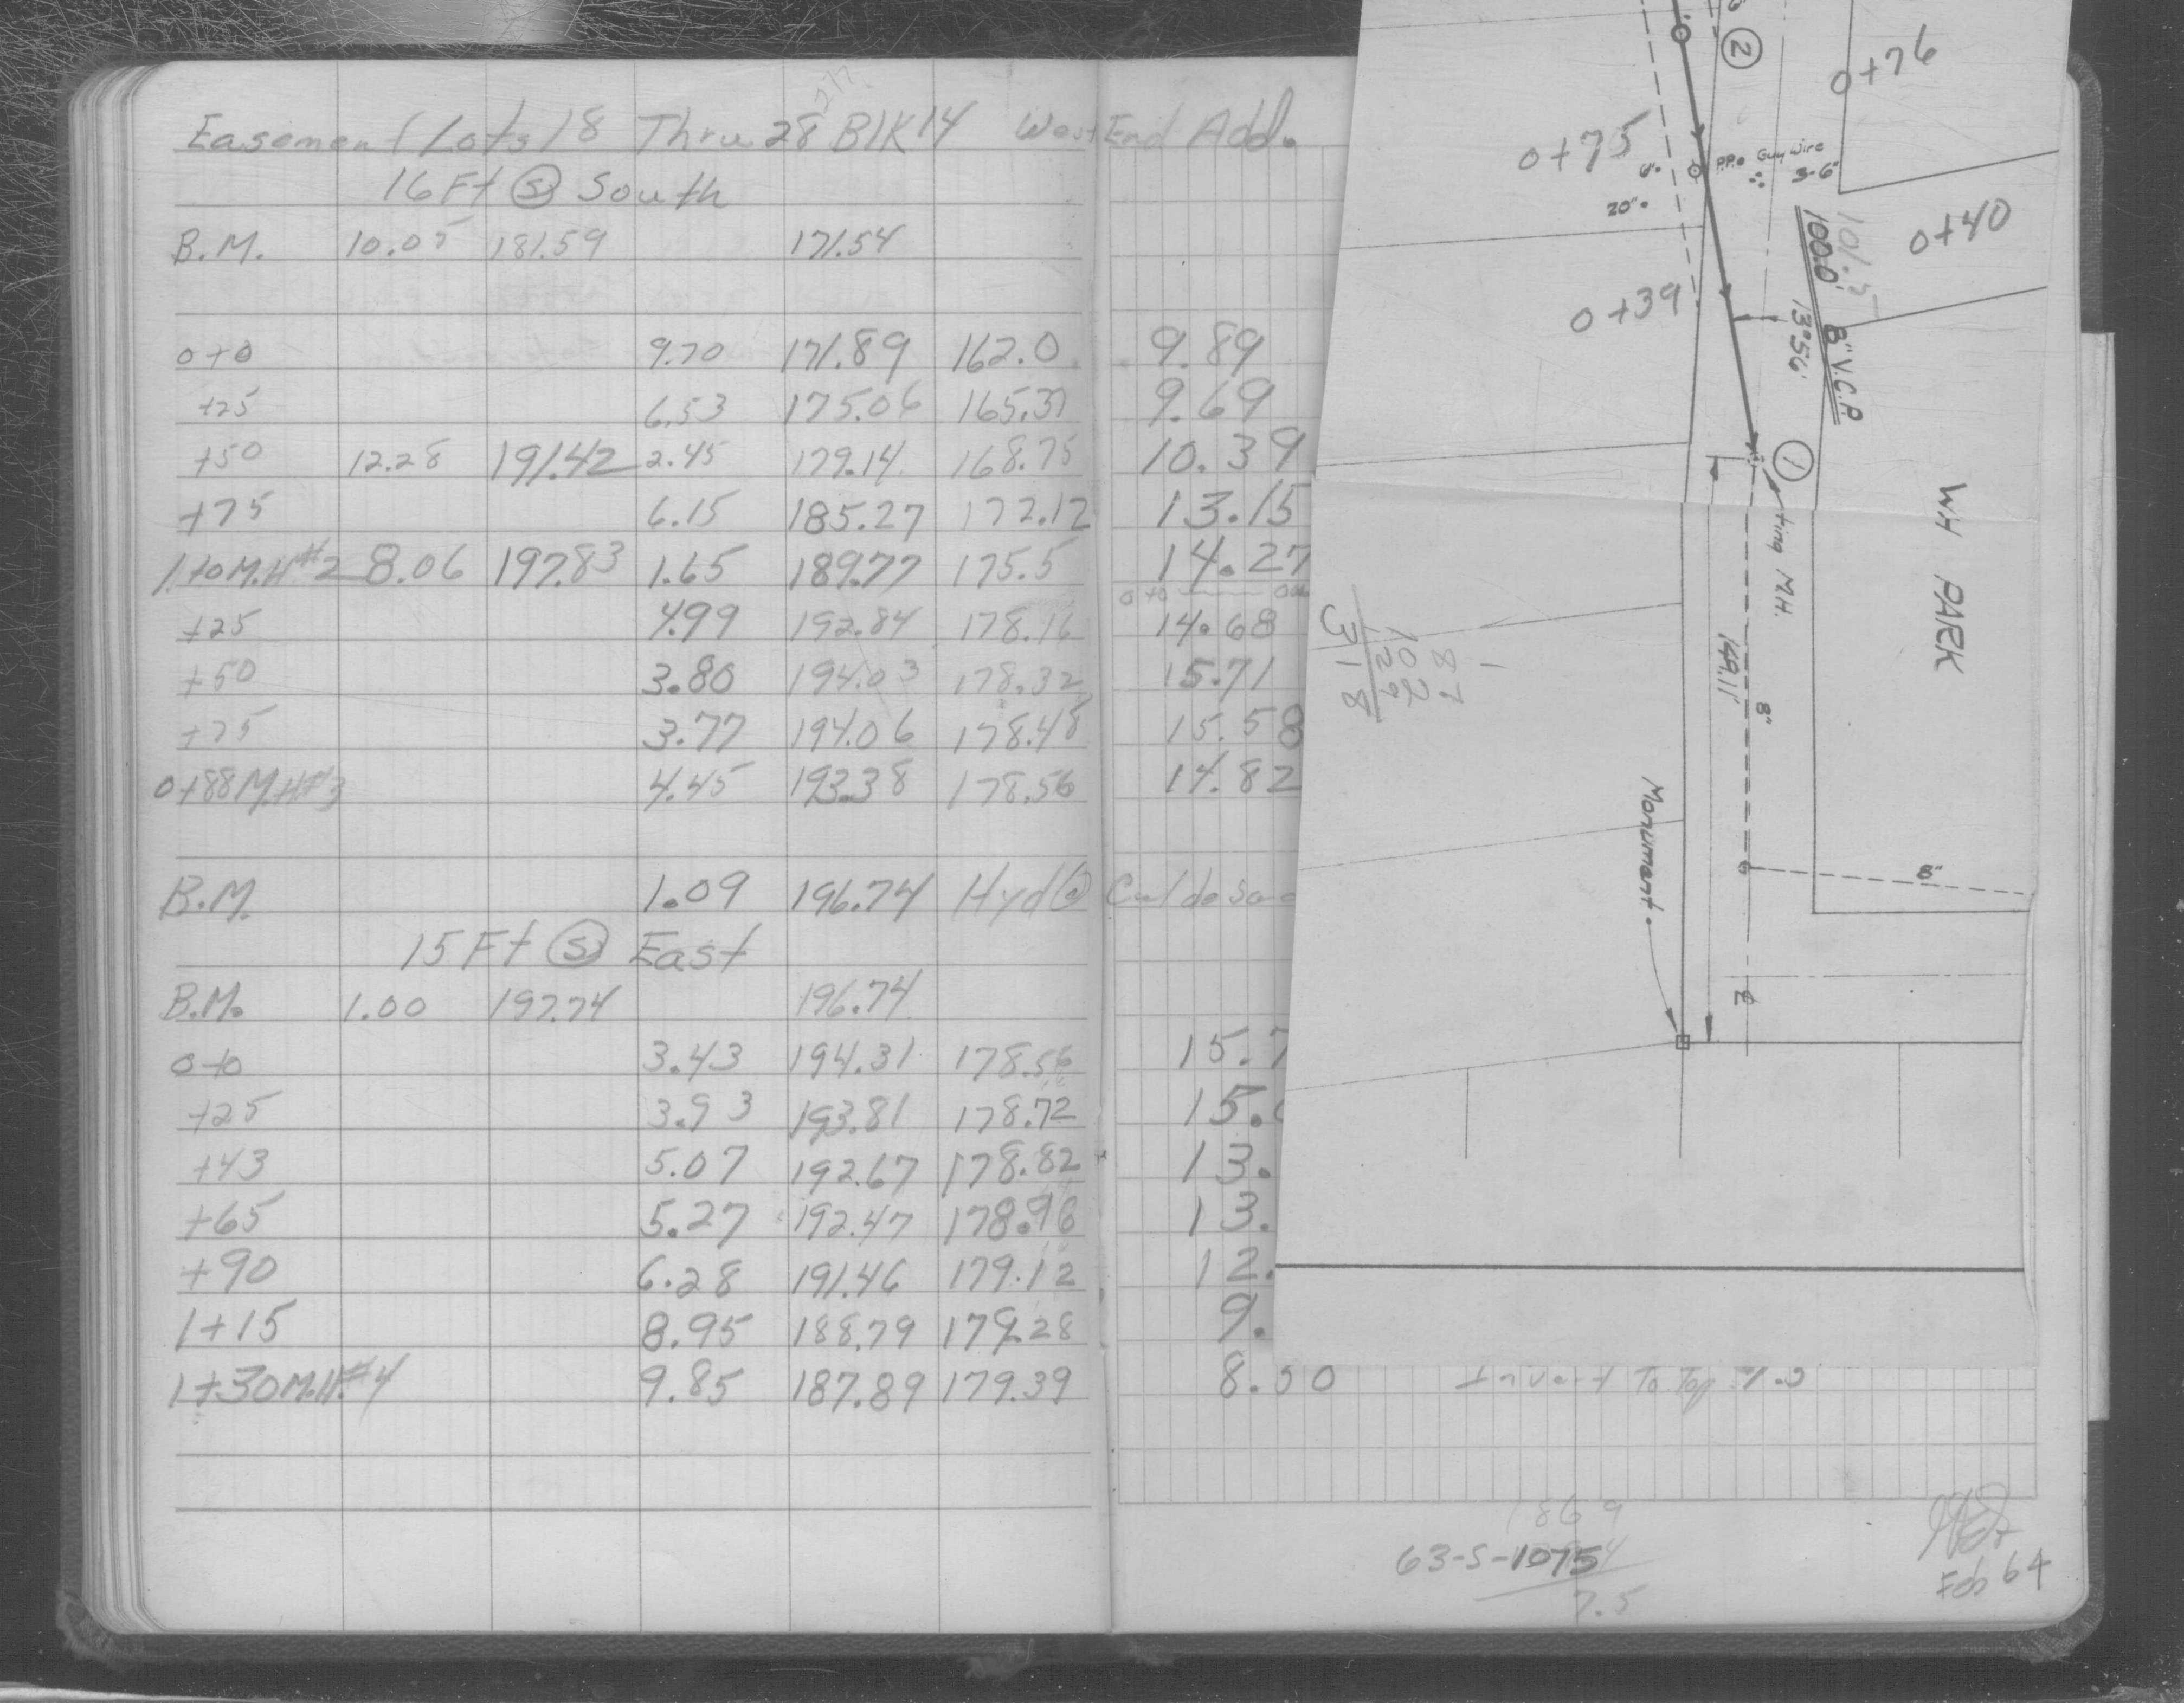 Easement Lots 18 Thru 28 Blk 14 West End Add.
16 Ft Ⓢ South
B.M. 10.05 181.59 171.54
0+0 9.70 171.89 162.0 9.89
+25 6.53 175.06 165.37 9.69
+50 12.28 191.42 2.45 179.14 168.75 10.39
+75 6.15 185.27 172.12 13.15
1+0 M.H #2 8.06 197.83 1.65 189.77 175.5 14.27
0+0
+25 4.99 192.84 178.16 14.68
+50 3.80 194.03 178.32 15.71
+75 3.77 194.06 178.48 15.58
0+88 M.H #3 4.45 193.38 178.56 14.82
B.M. 1.09 196.74 Hyd @ Cul de sac
15 Ft Ⓢ East
B.M. 1.00 197.74 196.74
0+0 3.43 194.31 178.56 15.7
+25 3.93 193.81 178.72 15.
+43 5.07 192.67 178.82 13.
+65 5.27 192.47 178.96 13.
+90 6.28 191.46 179.12 12.
1+15 8.95 188.79 179.28 9.
1+30 M.H. #4 9.85 187.89 179.39 8.50 Invert To Top
1869
63-S-1075
7.5
Feb 64
②
0+76
0+75
6".
P.P. Guy Wire
3-6"
20".
0+40
101.5
100.0' 8" V.C.P.
13°56'
0+39
①
ting M.H.
WH PARK
149.11'
8"
87
1029
318
Monument.
8"
℄